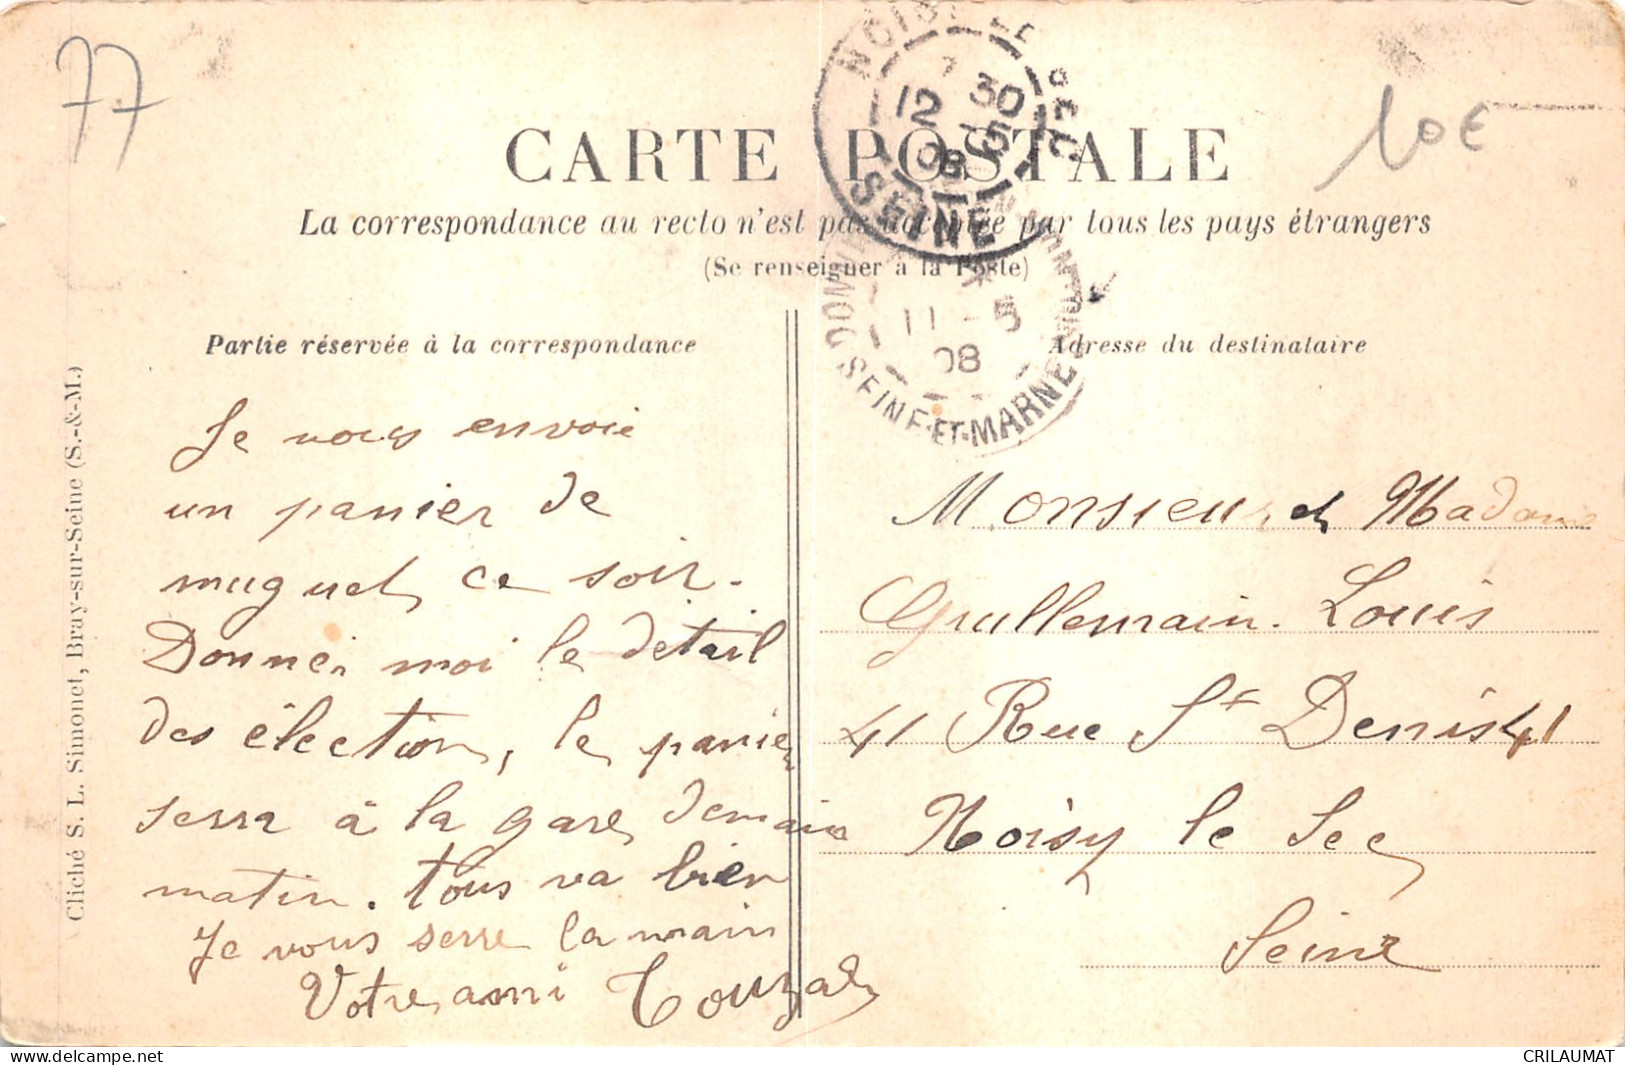 77
10€
CARTE POSTALE
La correspondance au recto n'est pas acceptée par tous les pays étrangers
(Se renseigner à la Poste)
12 30
15
08
SEINE
11 - 5
08
SEINE-ET-MARNE
Partie réservée à la correspondance
Adresse du destinataire
Cliché S. L. Simonet, Bray-sur-Seine (S.-&-M.)
Je vous envoie
un panier de
muguet ce soir.
Donnei moi le détail
des élection, le panier
serra à la gare demain
matin. tous va bien
Je vous serre la main
Votre ami
Monsieur et Madame
Louis
41 Rue St Denis 41
Noisy le Sec
Seine
delcampe.net
CRILAUMAT